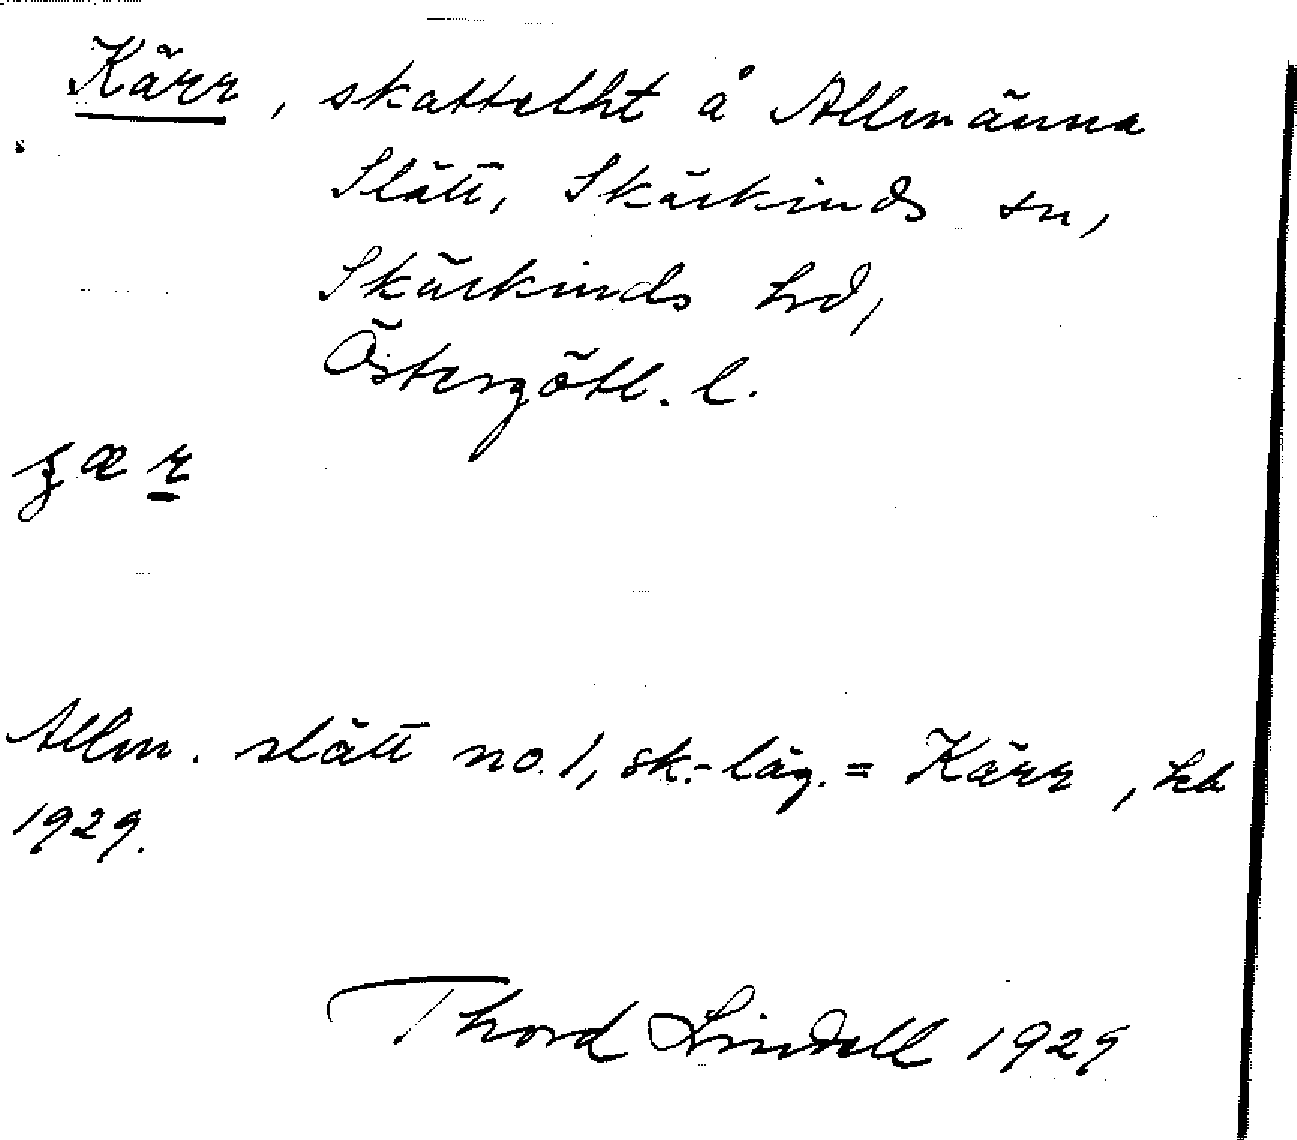 Kärr, skattelht å Allmänna
Slätt, Skärkinds sn,
Skärkinds hd,
Östergötl. l.
Allm. slätt no. 1, sk.-läg. = Kärr, kb
1929.
Thord Lindell 1929